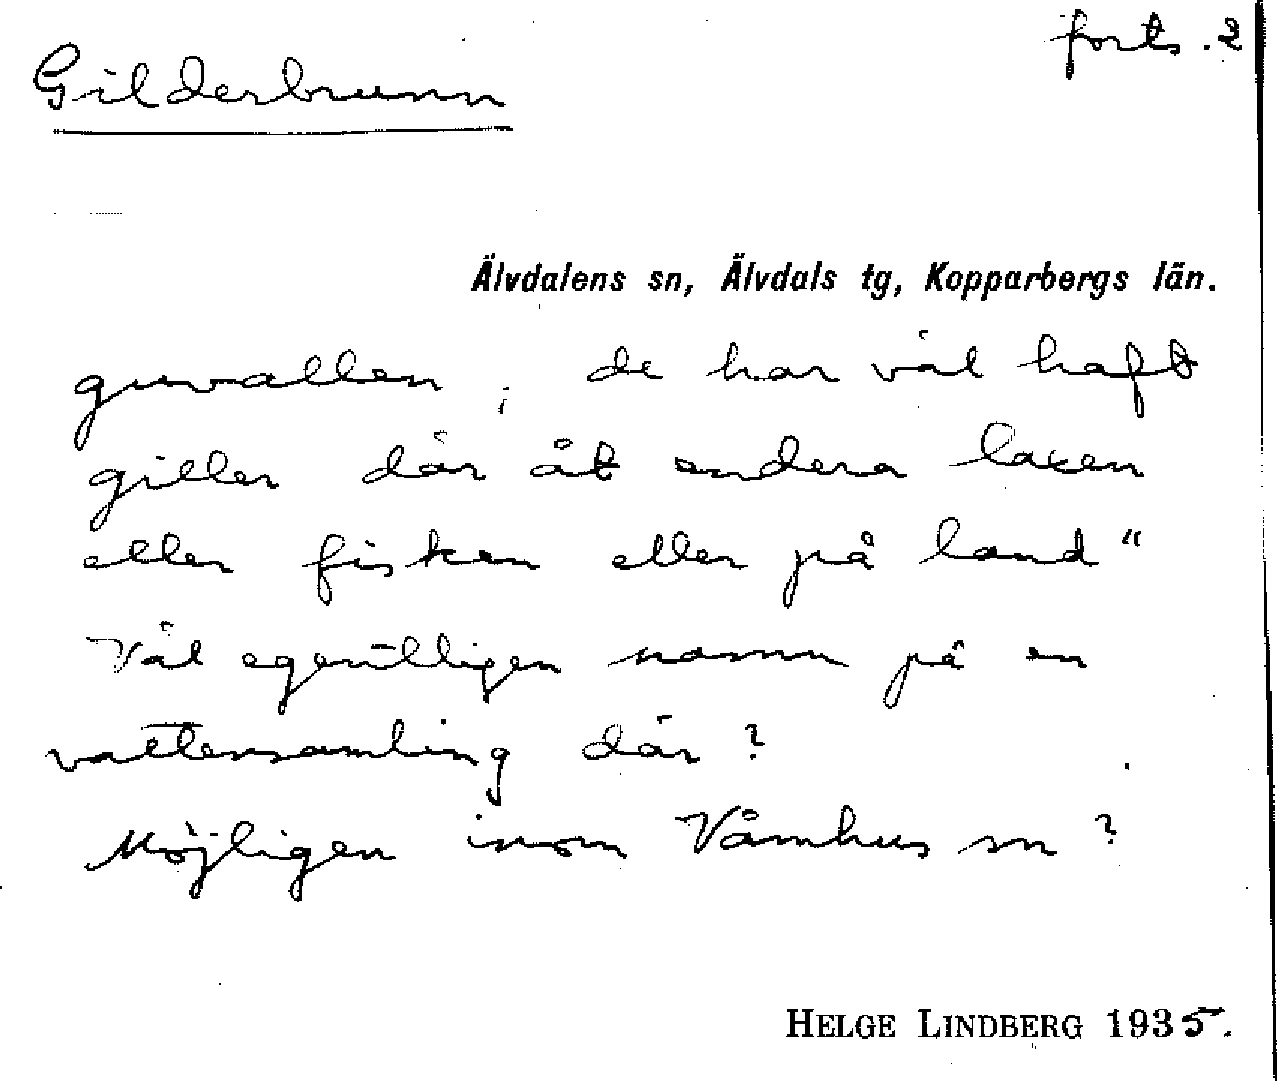 forts. 2
Gilderbrunn
Älvdalens sn, Älvdals tg, Kopparbergs län.
guvallen; de har väl haft
giller där åt endera laxen
eller fisken eller på land"
Väl egentligen namn på en
vattensamling där?
Möjligen inom Våmhus sn?
HELGE LINDBERG 1935.